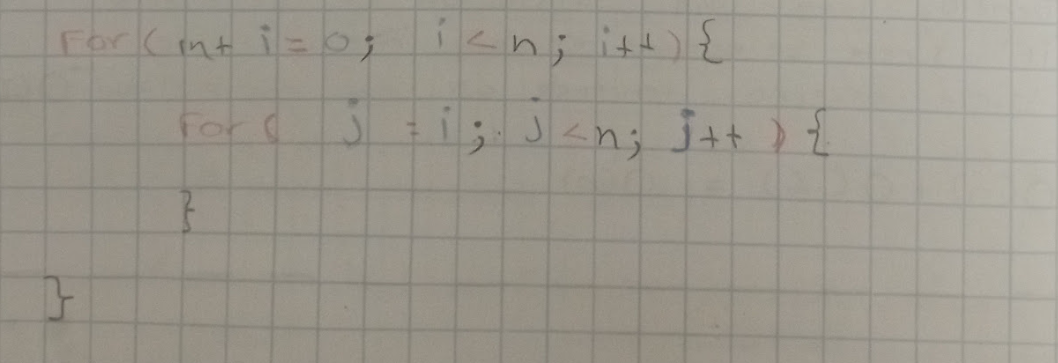 For ( int i = 0; i < n; i++ ) {
For ( j = i; j < n; j++ ) {
}
}